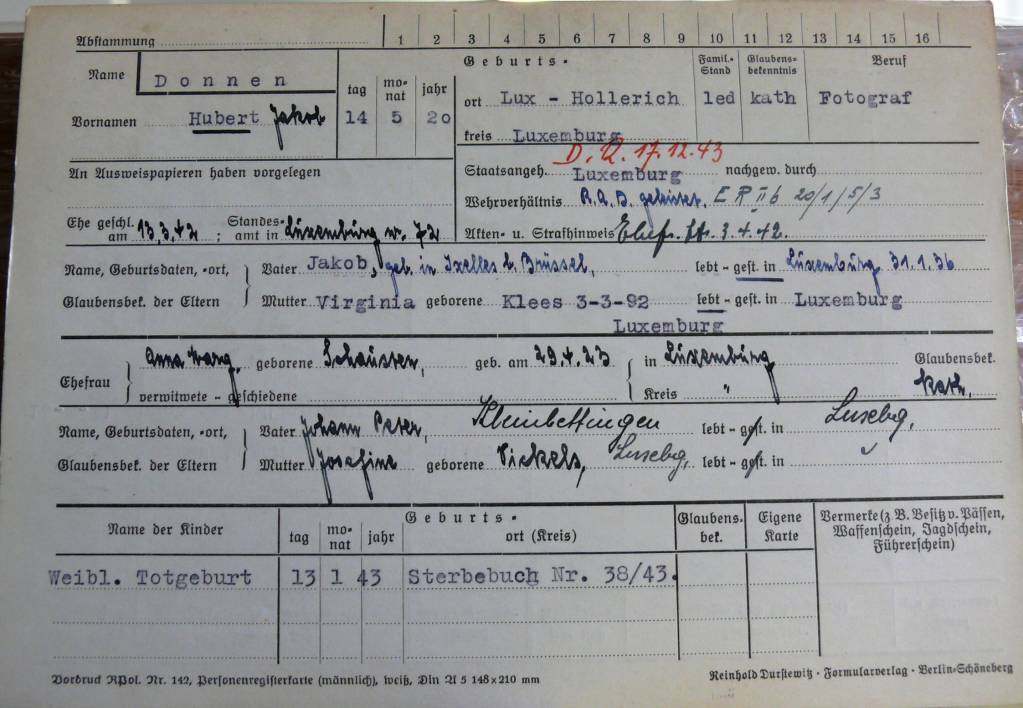 Abstammung 1 2 3 4 5 6 7 8 9 10 11 12 13 14 15 16
Name Donnen
Vornamen Hubert Jakob
tag monat jahr
14 5 20
Geburts-
ort Lux - Hollerich
kreis Luxemburg
Famil.-Stand
led
Glaubensbekenntnis
kath
Beruf
Fotograf
An Ausweispapieren haben vorgelegen
D. 17.12.43
Staatsangeh. Luxemburg nachgew. durch
Wehrverhältnis R.A.D. geleistet, E R II b 20/1/5/3
Ehe geschl. am 13.3.42 ; Standesamt in Luxemburg Nr. 72
Akten- u. Strafhinweis 3.4.42.
Name, Geburtsdaten, -ort,
Glaubensbek. der Eltern
Vater Jakob, geb. in Ixelles b. Brüssel, lebt - gest. in Luxemburg 31.1.36
Mutter Virginia geborene Klees 3-3-92 lebt - gest. in Luxemburg
Luxemburg
Ehefrau
Anna Marg. geborene Schauster, geb. am 29.4.23 in Luxemburg Glaubensbek.
verwitwete - geschiedene Kreis " kath.
Name, Geburtsdaten, -ort,
Glaubensbek. der Eltern
Vater Johann Peter, Kleinbettingen lebt - gest. in Luxebg,
Mutter Josefine geborene Nickels, Luxebg, lebt - gest. in
Name der Kinder
tag monat jahr
Geburts-
ort (Kreis)
Glaubens-
bek.
Eigene
Karte
Vermerke (z. B. Besitz v. Pässen,
Waffenschein, Jagdschein,
Führerschein)
Weibl. Totgeburt 13 1 43 Sterbebuch Nr. 38/43.
Vordruck RPol. Nr. 142, Personenregisterkarte (männlich), weiß, Din A 5 148×210 mm
Reinhold Durstewitz · Formularverlag · Berlin-Schöneberg